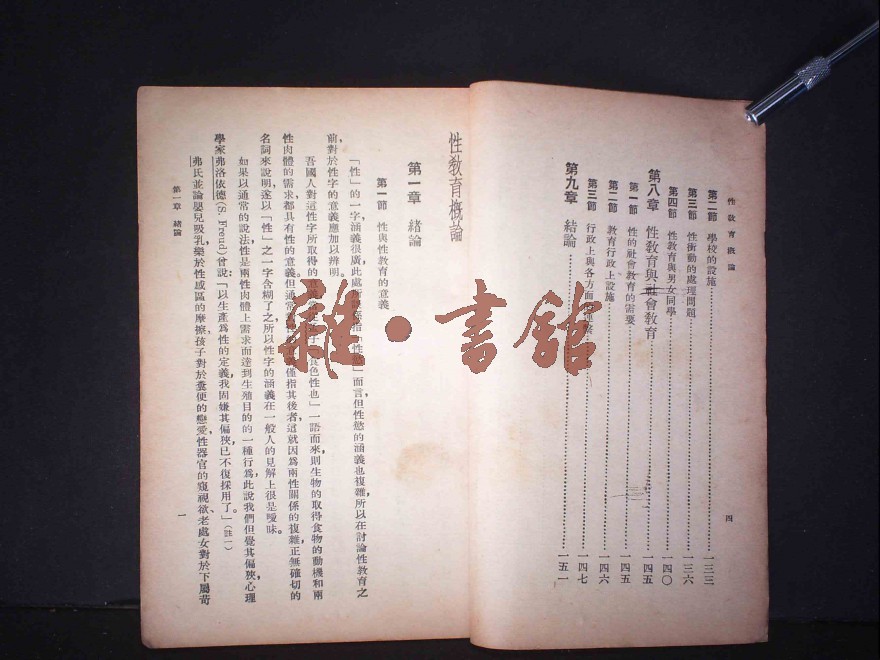 性教育概論
第二節　學校的設施……一三三
第三節　性衝動的處理問題……一三六
第四節　性教育與男女同學……一四〇
第八章　性教育與社會教育……一四五
第一節　性的社會教育的需要……一四五
第二節　教育行政上設施……一四六
第三節　行政上與各方面的連繫……一四七
第九章　結論……一五一
四
性教育概論
第一章　緒論
第一節　性與性教育的意義
「性」的一字，涵義很廣，此處所指「性慾」而言，但性慾的涵義也複雜，所以在討論性教育之
前，對於性字的意義應加以辨明。
吾國人對這性字所取得的食色性也」一語而來，則生物的取得食物的動機和兩
性肉體的需求，都具有性的意義。但通常僅指其後者，這就因爲兩性關係的複雜，正無確切的
名詞來說明，遂以「性」之一字含糊了之，所以性字的涵義，在一般人的見解上很是曖昧。
如果以通常的說法，性是兩性肉體上需求而達到生殖目的的一種行爲，此說我們但覺其偏狹，心理
學家弗洛依德(S. Freud)曾說：「以生產爲性的定義，我固嫌其偏狹，已不復採用了。」（註一）
弗氏並論嬰兒吸乳，樂於性感區的摩擦，孩子對於糞便的戀愛，性器官的窺視欲，老處女對於下屬苛
第一章　緒論
一
雜·書館